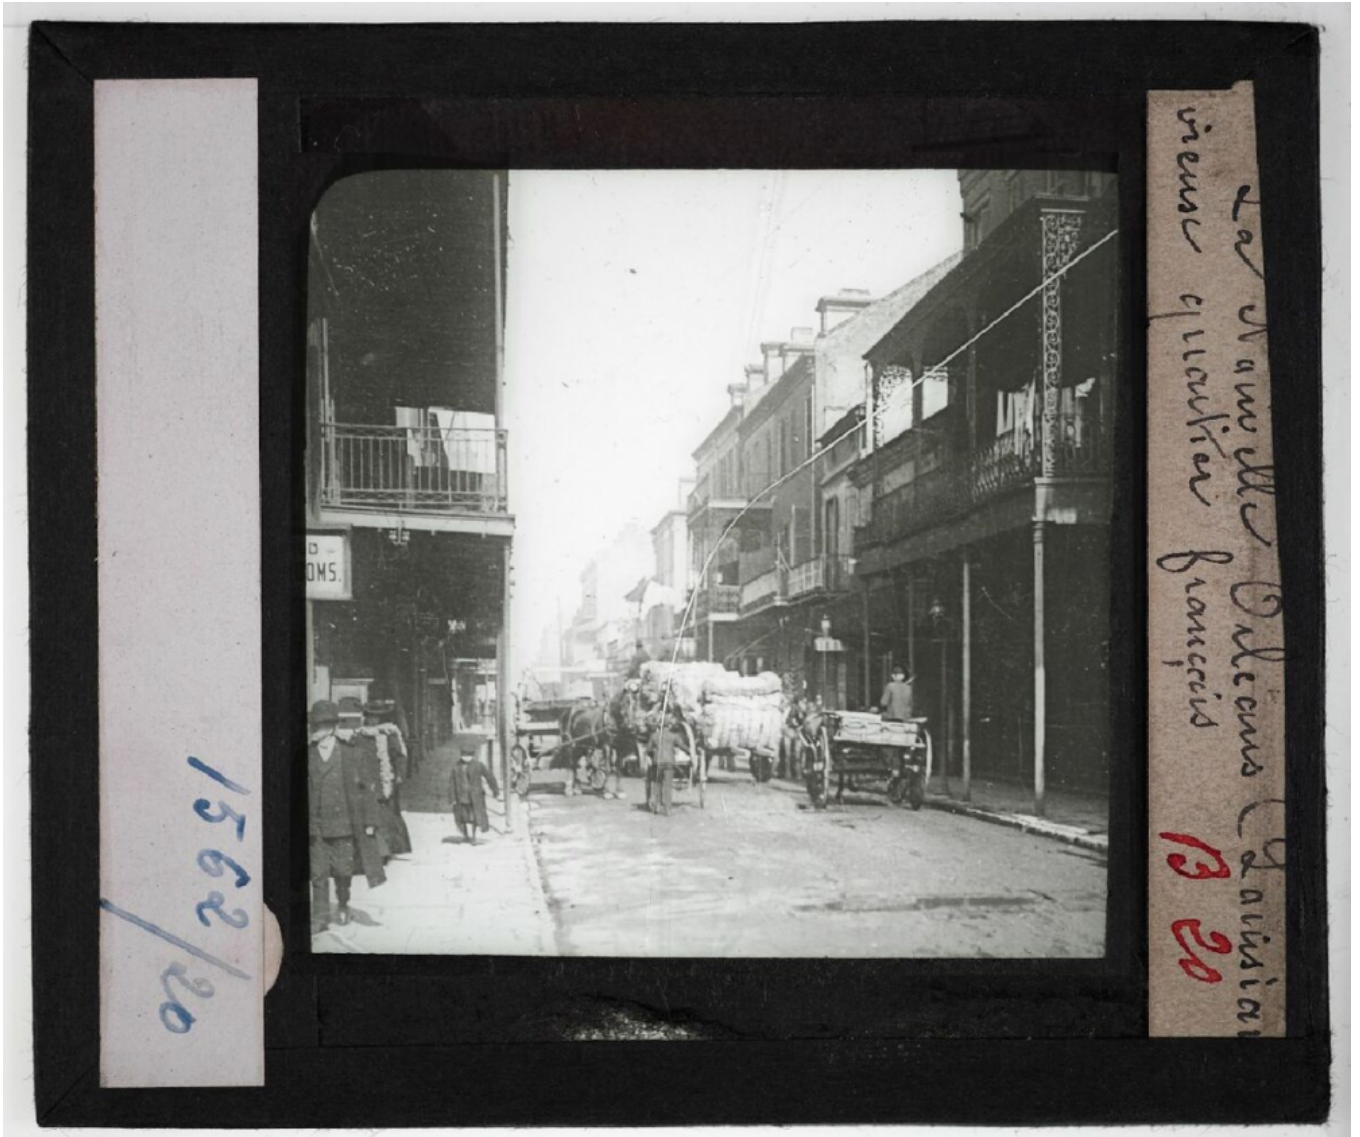 1562/20
D
OMS.
La Nouvelle Orléans (Louisian
vieuse quartier français
B 20